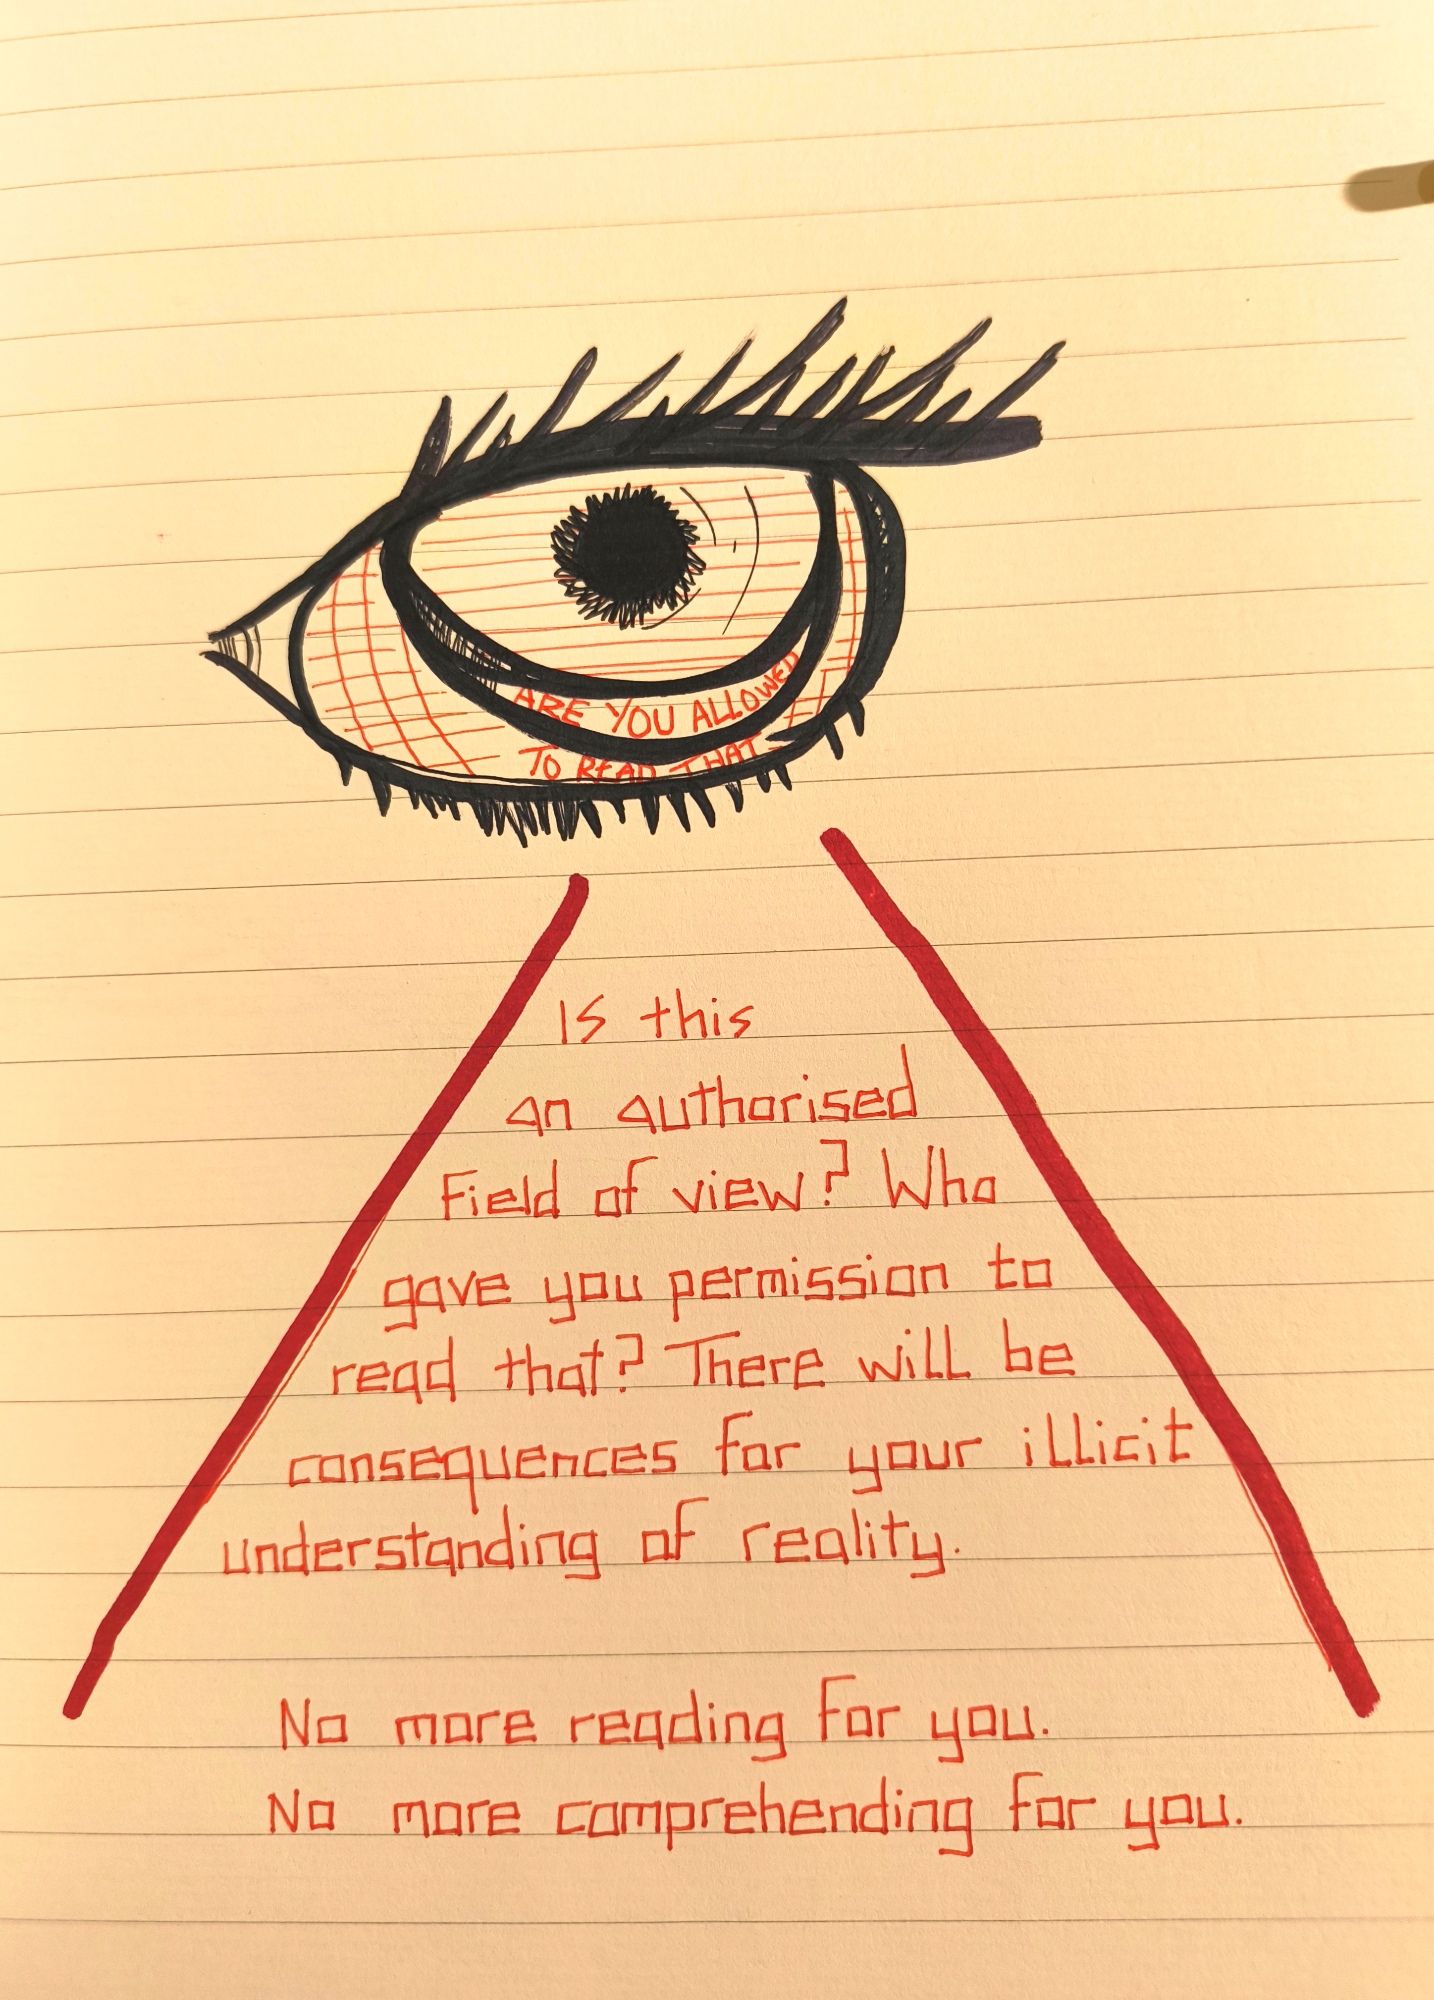 ARE YOU ALLOWED
TO READ THAT
Is this
an authorised
Field of view? Who
gave you permission to
read that? There will be
consequences for your illicit
understanding of reality.
No more reading for you.
No more comprehending for you.